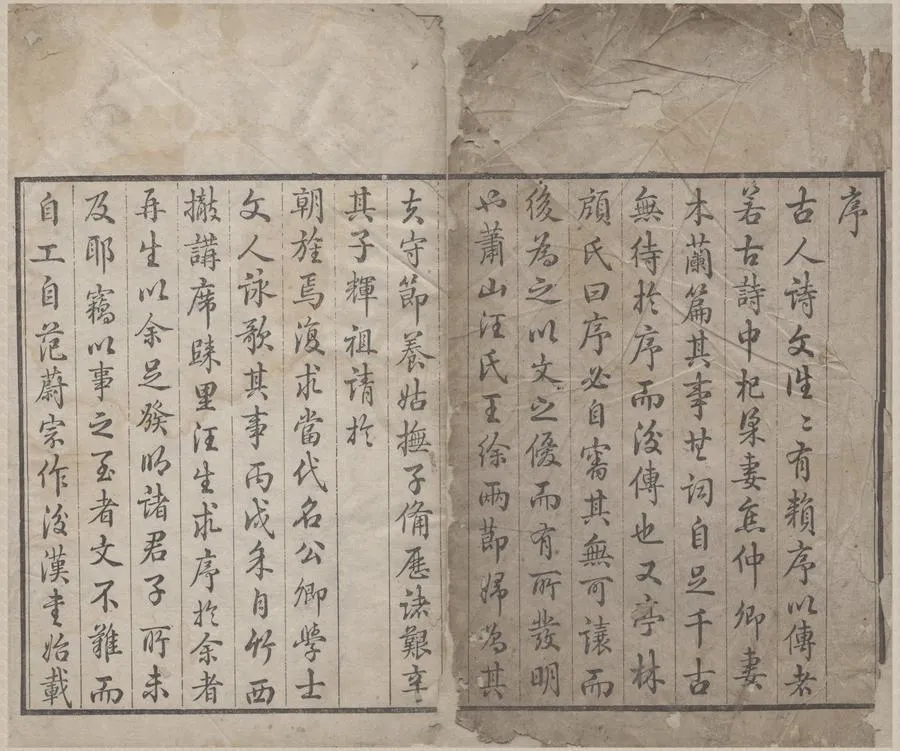 序
古人詩文徃〻有賴序以傳者
若古詩中杞梁妻焦仲卿妻
木蘭篇其事其詞自足千古
無待於序而後傳也又亭林
顧氏曰序必自審其無可讓而
後為之以文之優而有所發明
也蕭山汪氏王徐兩節婦為其
夫守節養姑撫子備歷諸艱辛
其子輝祖請於
朝旌焉復求當代名公卿學士
文人詠歌其事丙戌年自竹西
撤講席歸里汪生求序於余者
再生以余足發明諸君子所未
及耶竊以事之至者文不難而
自工自范蔚宗作後漢書始載